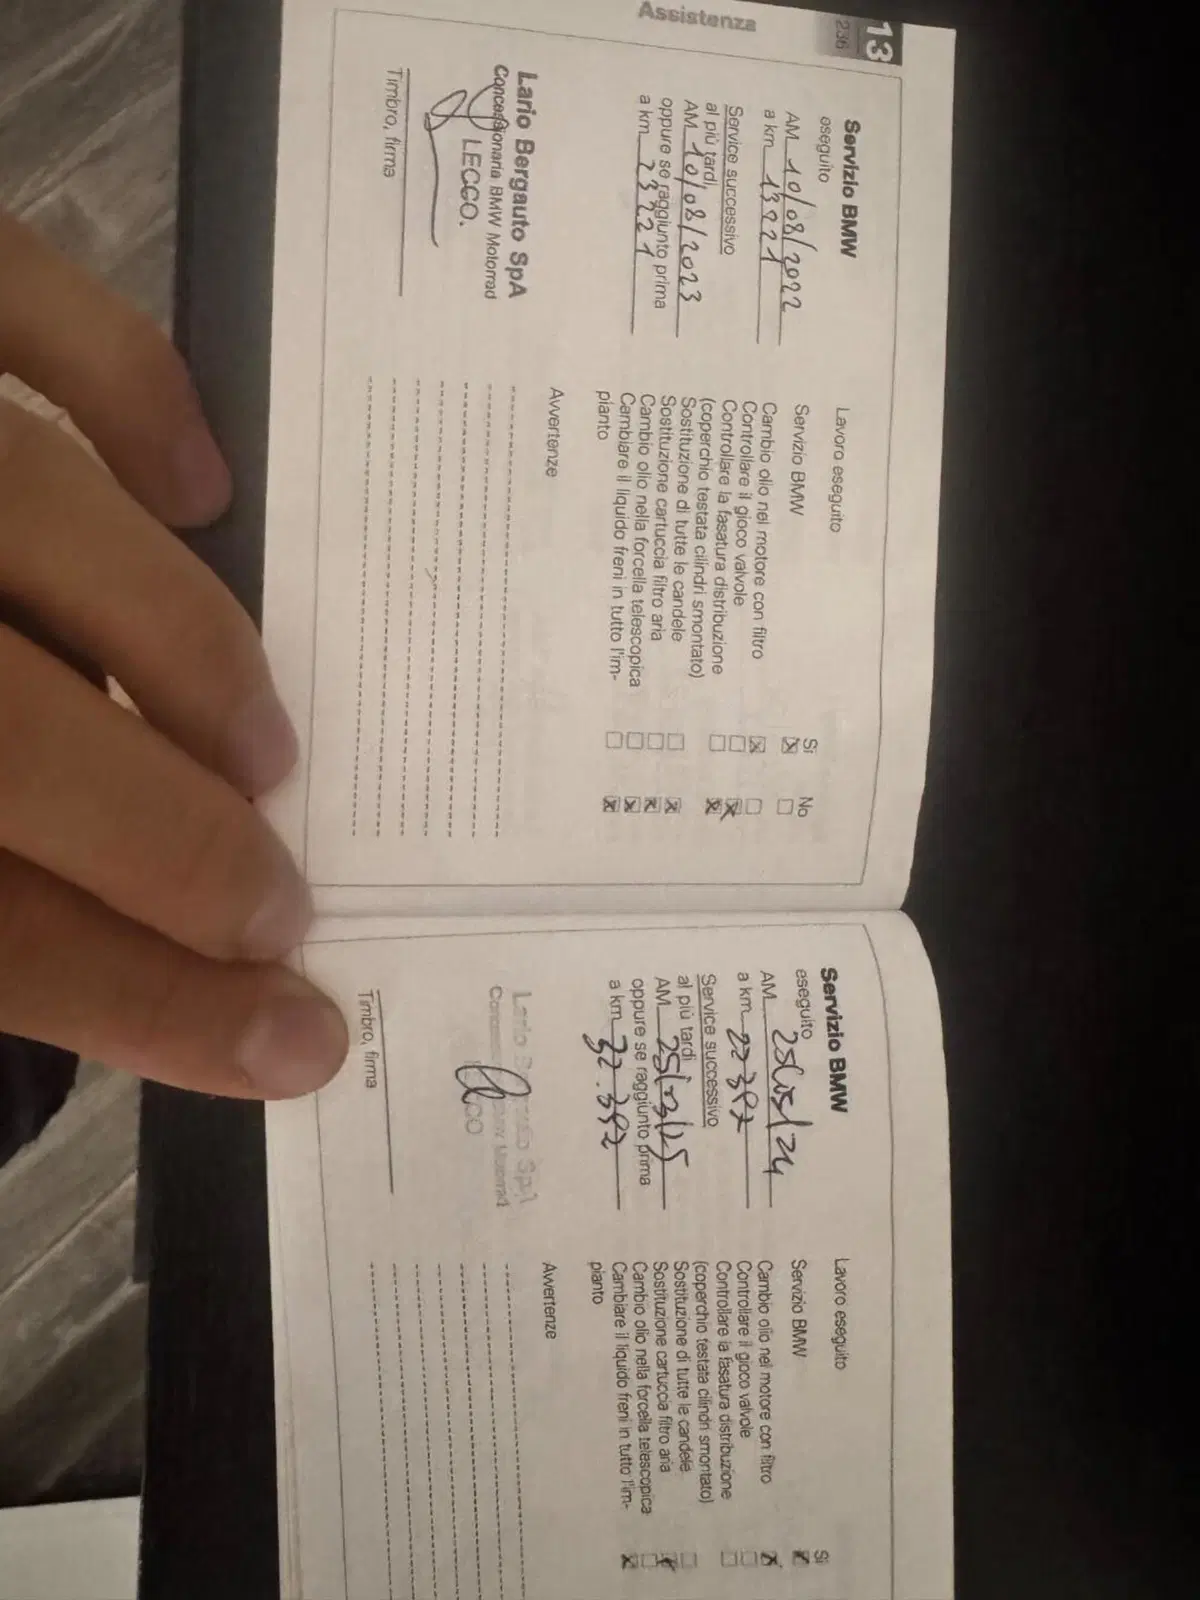 13
236
Assistenza
Servizio BMW
eseguito
AM 10/08/2022
a km 13221
Service successivo
al più tardi,
AM 10/08/2023
oppure se raggiunto prima
a km 23221
Lario Bergauto SpA
Concessionaria BMW Motorrad
LECCO.
Timbro, firma
Lavoro eseguito
Sì No
Servizio BMW
Cambio olio nel motore con filtro
Controllare il gioco valvole
Controllare la fasatura distribuzione
(coperchio testata cilindri smontato)
Sostituzione di tutte le candele
Sostituzione cartuccia filtro aria
Cambio olio nella forcella telescopica
Cambiare il liquido freni in tutto l'im-
pianto
Avvertenze
Servizio BMW
eseguito
AM
a km 22397
Service successivo
al più tardi
AM 25/03/25
oppure se raggiunto prima
a km 32.392
Lario SpA
Motorrad
Timbro, firma
Lavoro eseguito
Sì
Servizio BMW
Cambio olio nel motore con filtro
Controllare il gioco valvole
Controllare la fasatura distribuzione
(coperchio testata cilindri smontato)
Sostituzione di tutte le candele
Sostituzione cartuccia filtro aria
Cambio olio nella forcella telescopica
Cambiare il liquido freni in tutto l'im-
pianto
Avvertenze